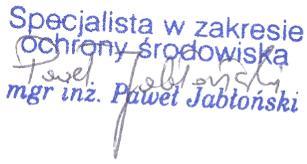 Specjalista w zakresie
ochrony środowiska
Paweł Jabłoński
mgr inż. Paweł Jabłoński